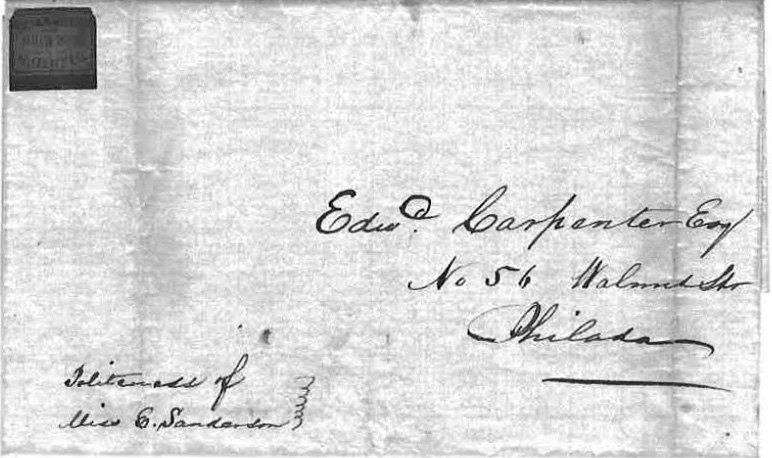 Edwd. Carpenter Esq
No 56 Walnut Str
Philada
Politeness of
Miss E. Sanderson